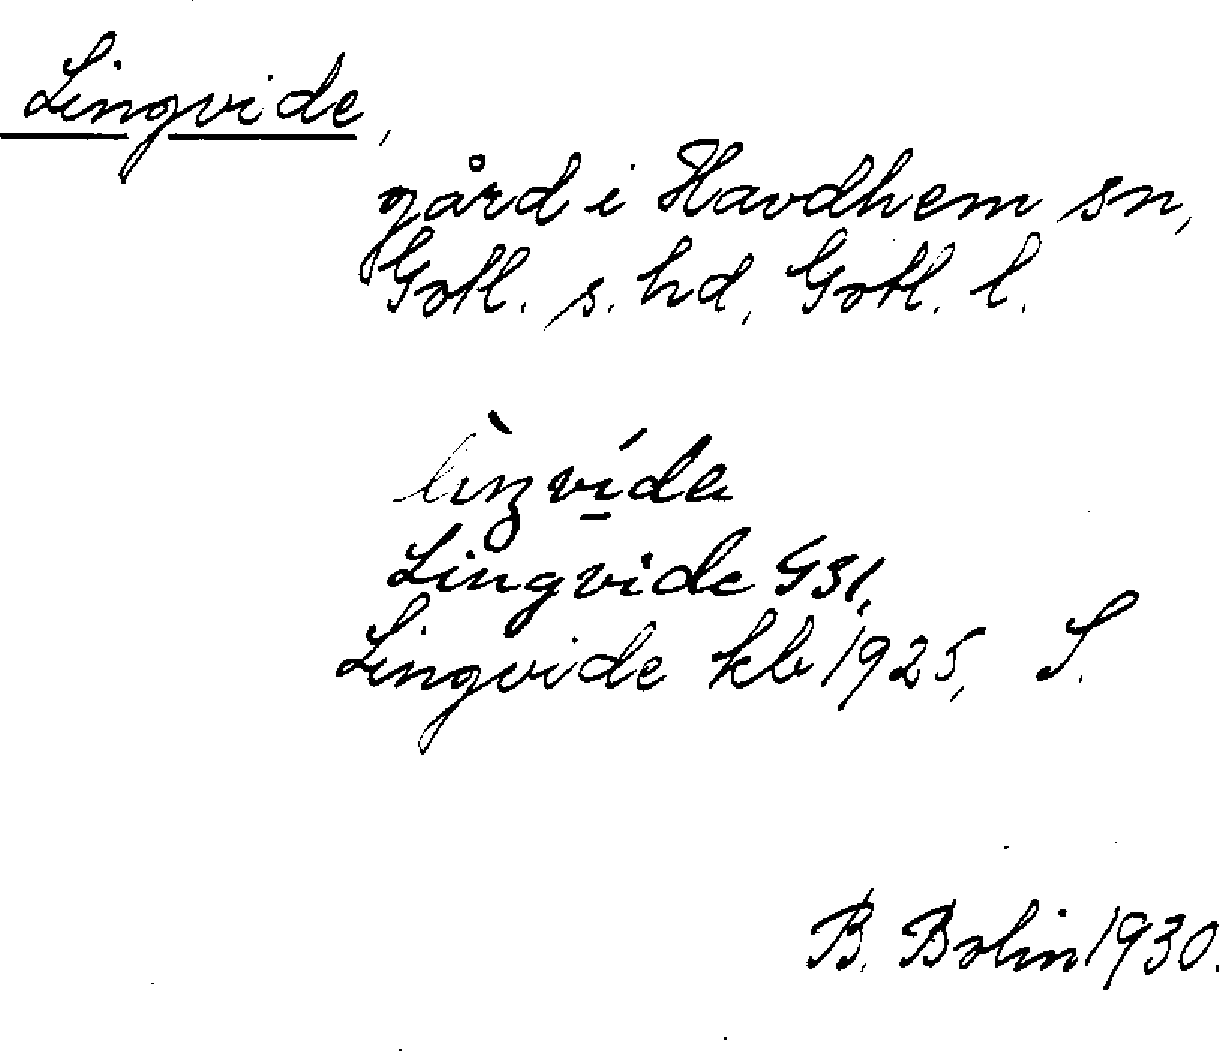 Lingvide,
gård i Havdhem sn,
Gotl. s. hd, Gotl. l.
Lingvide GSl,
Lingvide kb 1925, S.
B. Bolin 1930.